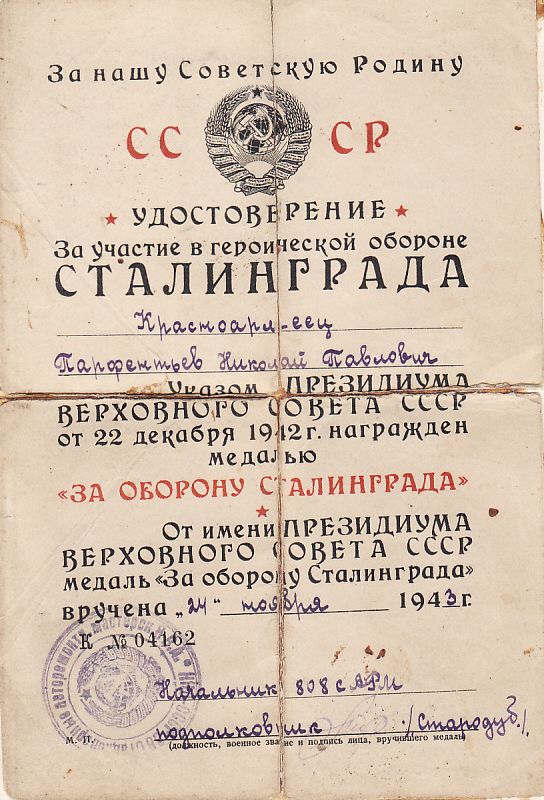 За нашу Советскую Родину
СССР
УДОСТОВЕРЕНИЕ
За участие в героической обороне
СТАЛИНГРАДА
Красноарм-еец
Парфентьев Николай Павлович
Указом ПРЕЗИДИУМА
ВЕРХОВНОГО СОВЕТА СССР
от 22 декабря 1942 г. награжден
медалью
«ЗА ОБОРОНУ СТАЛИНГРАДА»
От имени ПРЕЗИДИУМА
ВЕРХОВНОГО СОВЕТА СССР
медаль «За оборону Сталинграда»
вручена „24" ноября 1943 г.
К № 04162
Начальник 808 с АРМ
подполковник /Стародуб./
М. П.
(должность, военное звание и подпись лица, вручившего медаль)